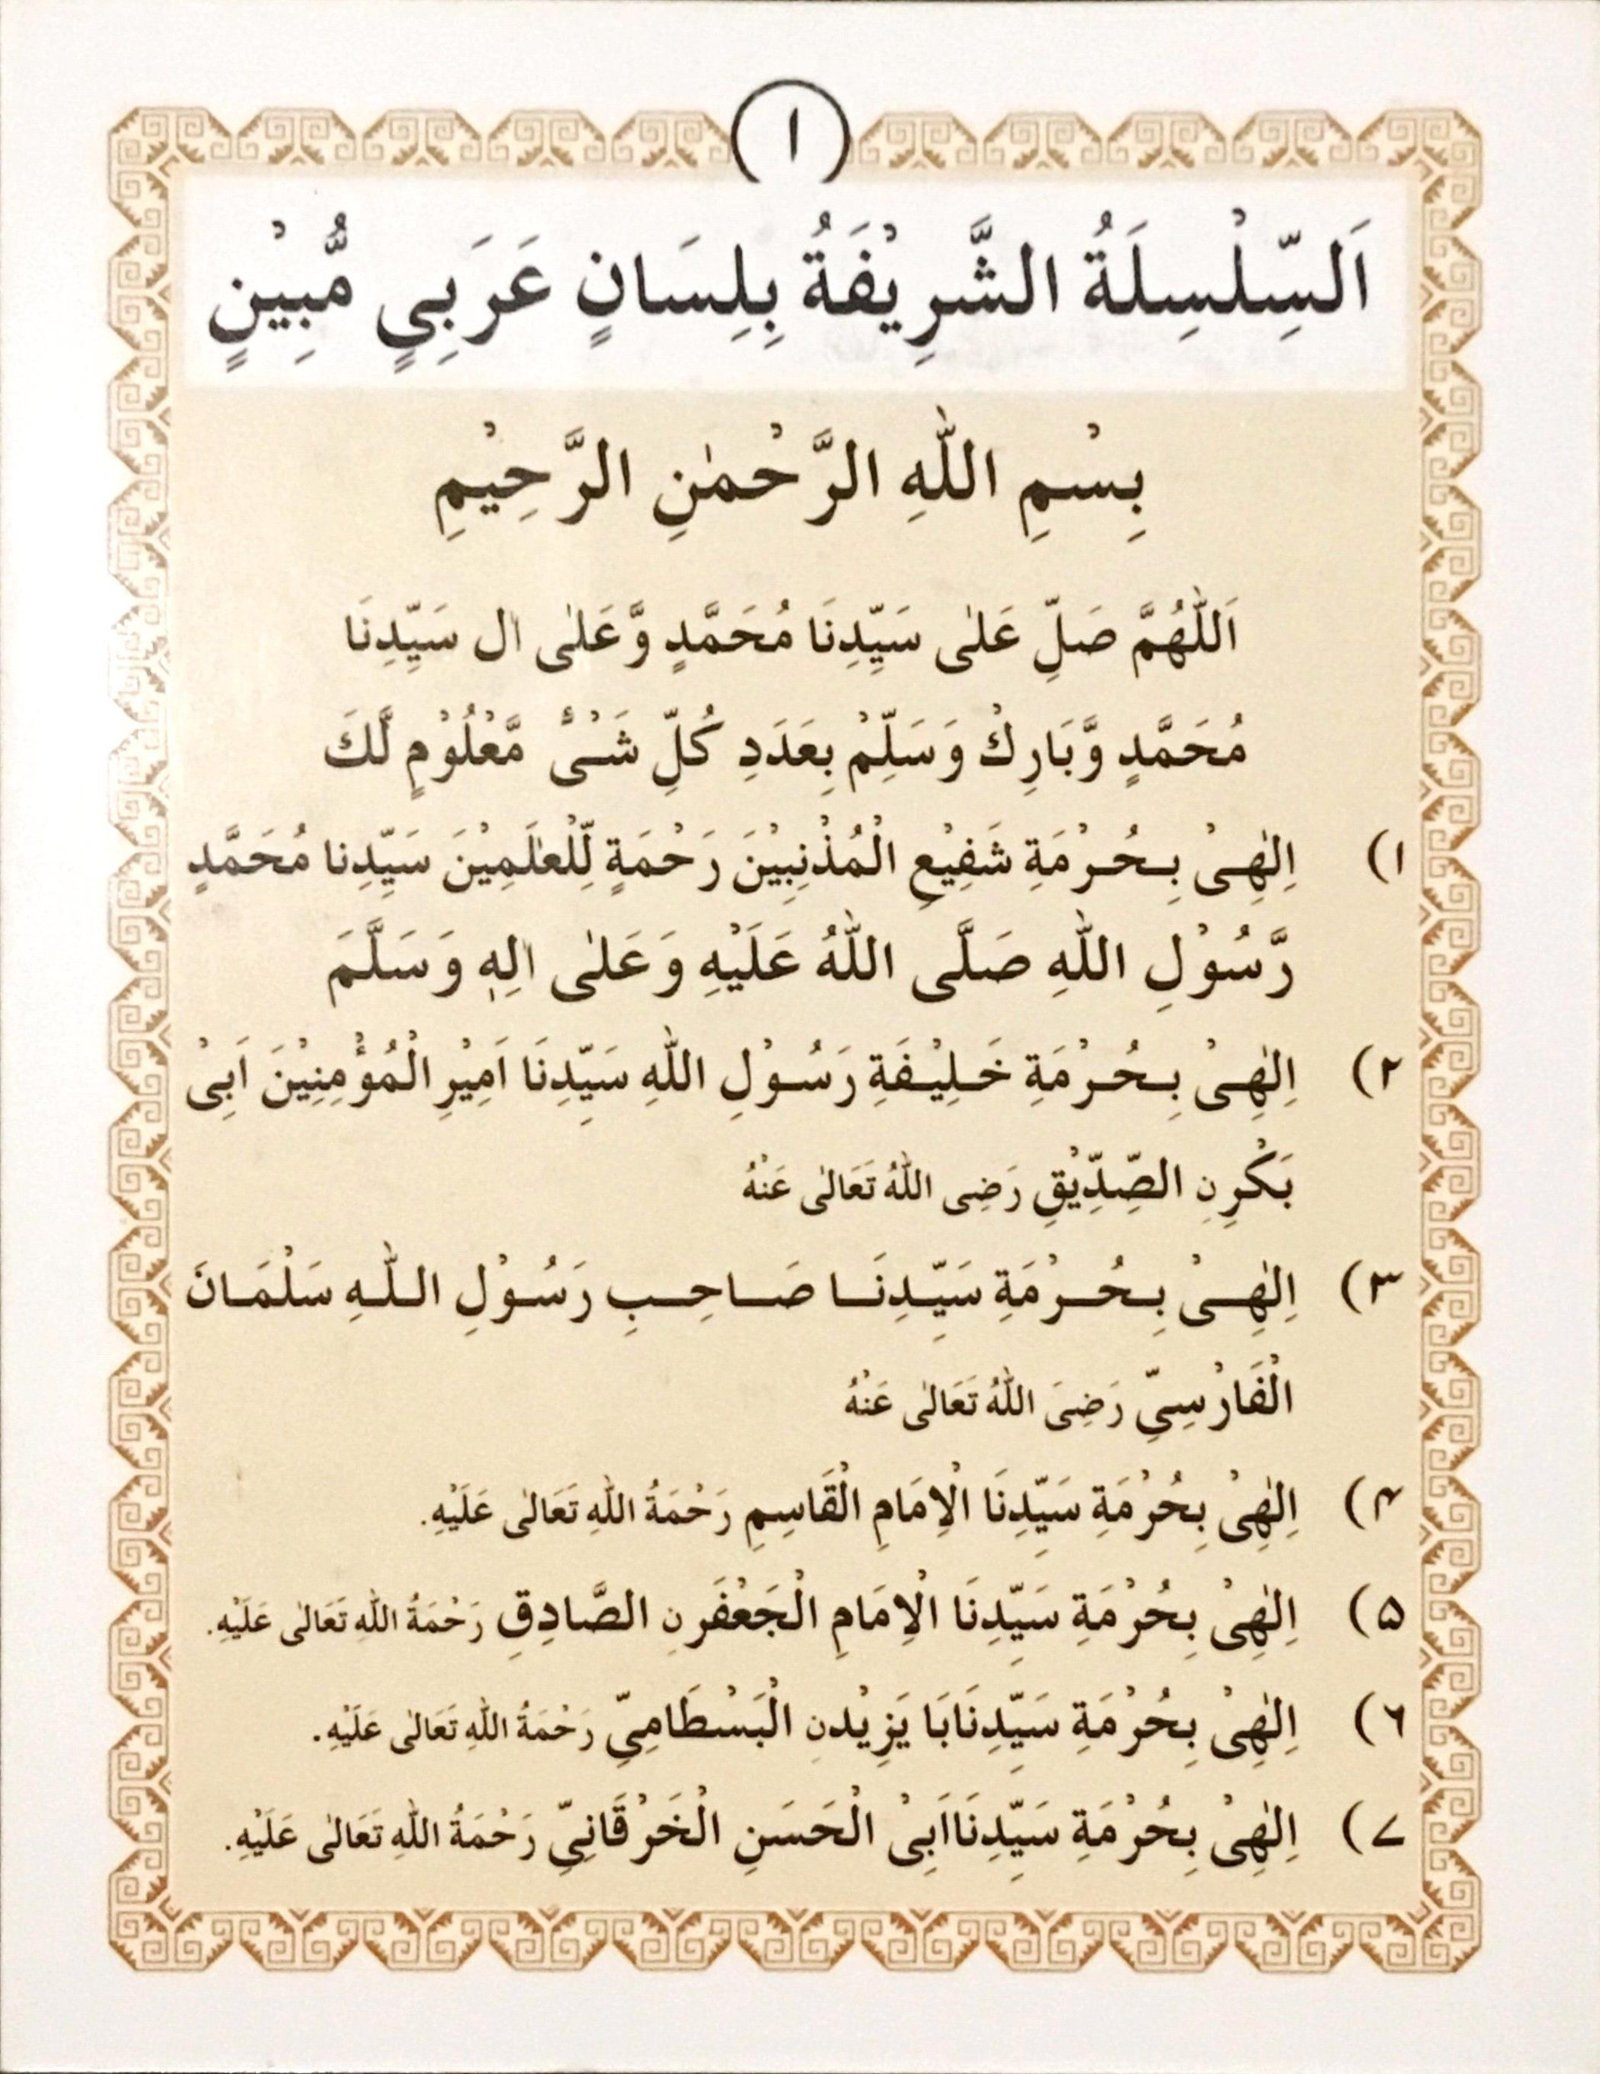 ١
اَلسِّلْسِلَةُ الشَّرِيْفَةُ بِلِسَانٍ عَرَبِيٍ مُّبِيْنٍ
بِسْمِ اللّٰهِ الرَّحْمٰنِ الرَّحِيْمِ
اَللّٰهُمَّ صَلِّ عَلٰى سَيِّدِنَا مُحَمَّدٍ وَّعَلٰى اٰل سَيِّدِنَا
مُحَمَّدٍ وَّبَارِكْ وَسَلِّمْ بِعَدَدِ كُلِّ شَىْءٍ مَّعْلُوْمٍ لَّكَ
١) اِلٰهِىْ بِحُرْمَةِ شَفِيْعِ الْمُذْنِبِيْنَ رَحْمَةٍ لِّلْعٰلَمِيْنَ سَيِّدِنا مُحَمَّدٍ
رَّسُوْلِ اللّٰهِ صَلَّى اللّٰهُ عَلَيْهِ وَعَلٰى اٰلِهٖ وَسَلَّمَ
٢) اِلٰهِىْ بِحُرْمَةِ خَلِيْفَةِ رَسُوْلِ اللّٰهِ سَيِّدِنَا اَمِيْرِ الْمُؤْمِنِيْنَ اَبِىْ
بَكْرِنِ الصِّدِّيْقِ رَضِى اللّٰهُ تَعَالٰى عَنْهُ
٣) اِلٰهِىْ بِحُرْمَةِ سَيِّدِنَا صَاحِبِ رَسُوْلِ اللّٰهِ سَلْمَانَ
الْفَارْسِيِّ رَضِىَ اللّٰهُ تَعَالٰى عَنْهُ
۴) اِلٰهِىْ بِحُرْمَةِ سَيِّدِنَا الْاِمَامِ الْقَاسِمِ رَحْمَةُ اللّٰهِ تَعَالٰى عَلَيْهِ.
۵) اِلٰهِىْ بِحُرْمَةِ سَيِّدِنَا الْاِمَامِ الْجَعْفَرِنِ الصَّادِقِ رَحْمَةُ اللّٰهِ تَعَالٰى عَلَيْهِ.
٦) اِلٰهِىْ بِحُرْمَةِ سَيِّدِنَابَا يَزِيْدنِ الْبَسْطَامِيِّ رَحْمَةُ اللّٰهِ تَعَالٰى عَلَيْهِ.
۷) اِلٰهِىْ بِحُرْمَةِ سَيِّدِنَااَبِىْ الْحَسَنِ الْخَرْقَانِيِّ رَحْمَةُ اللّٰهِ تَعَالٰى عَلَيْهِ.